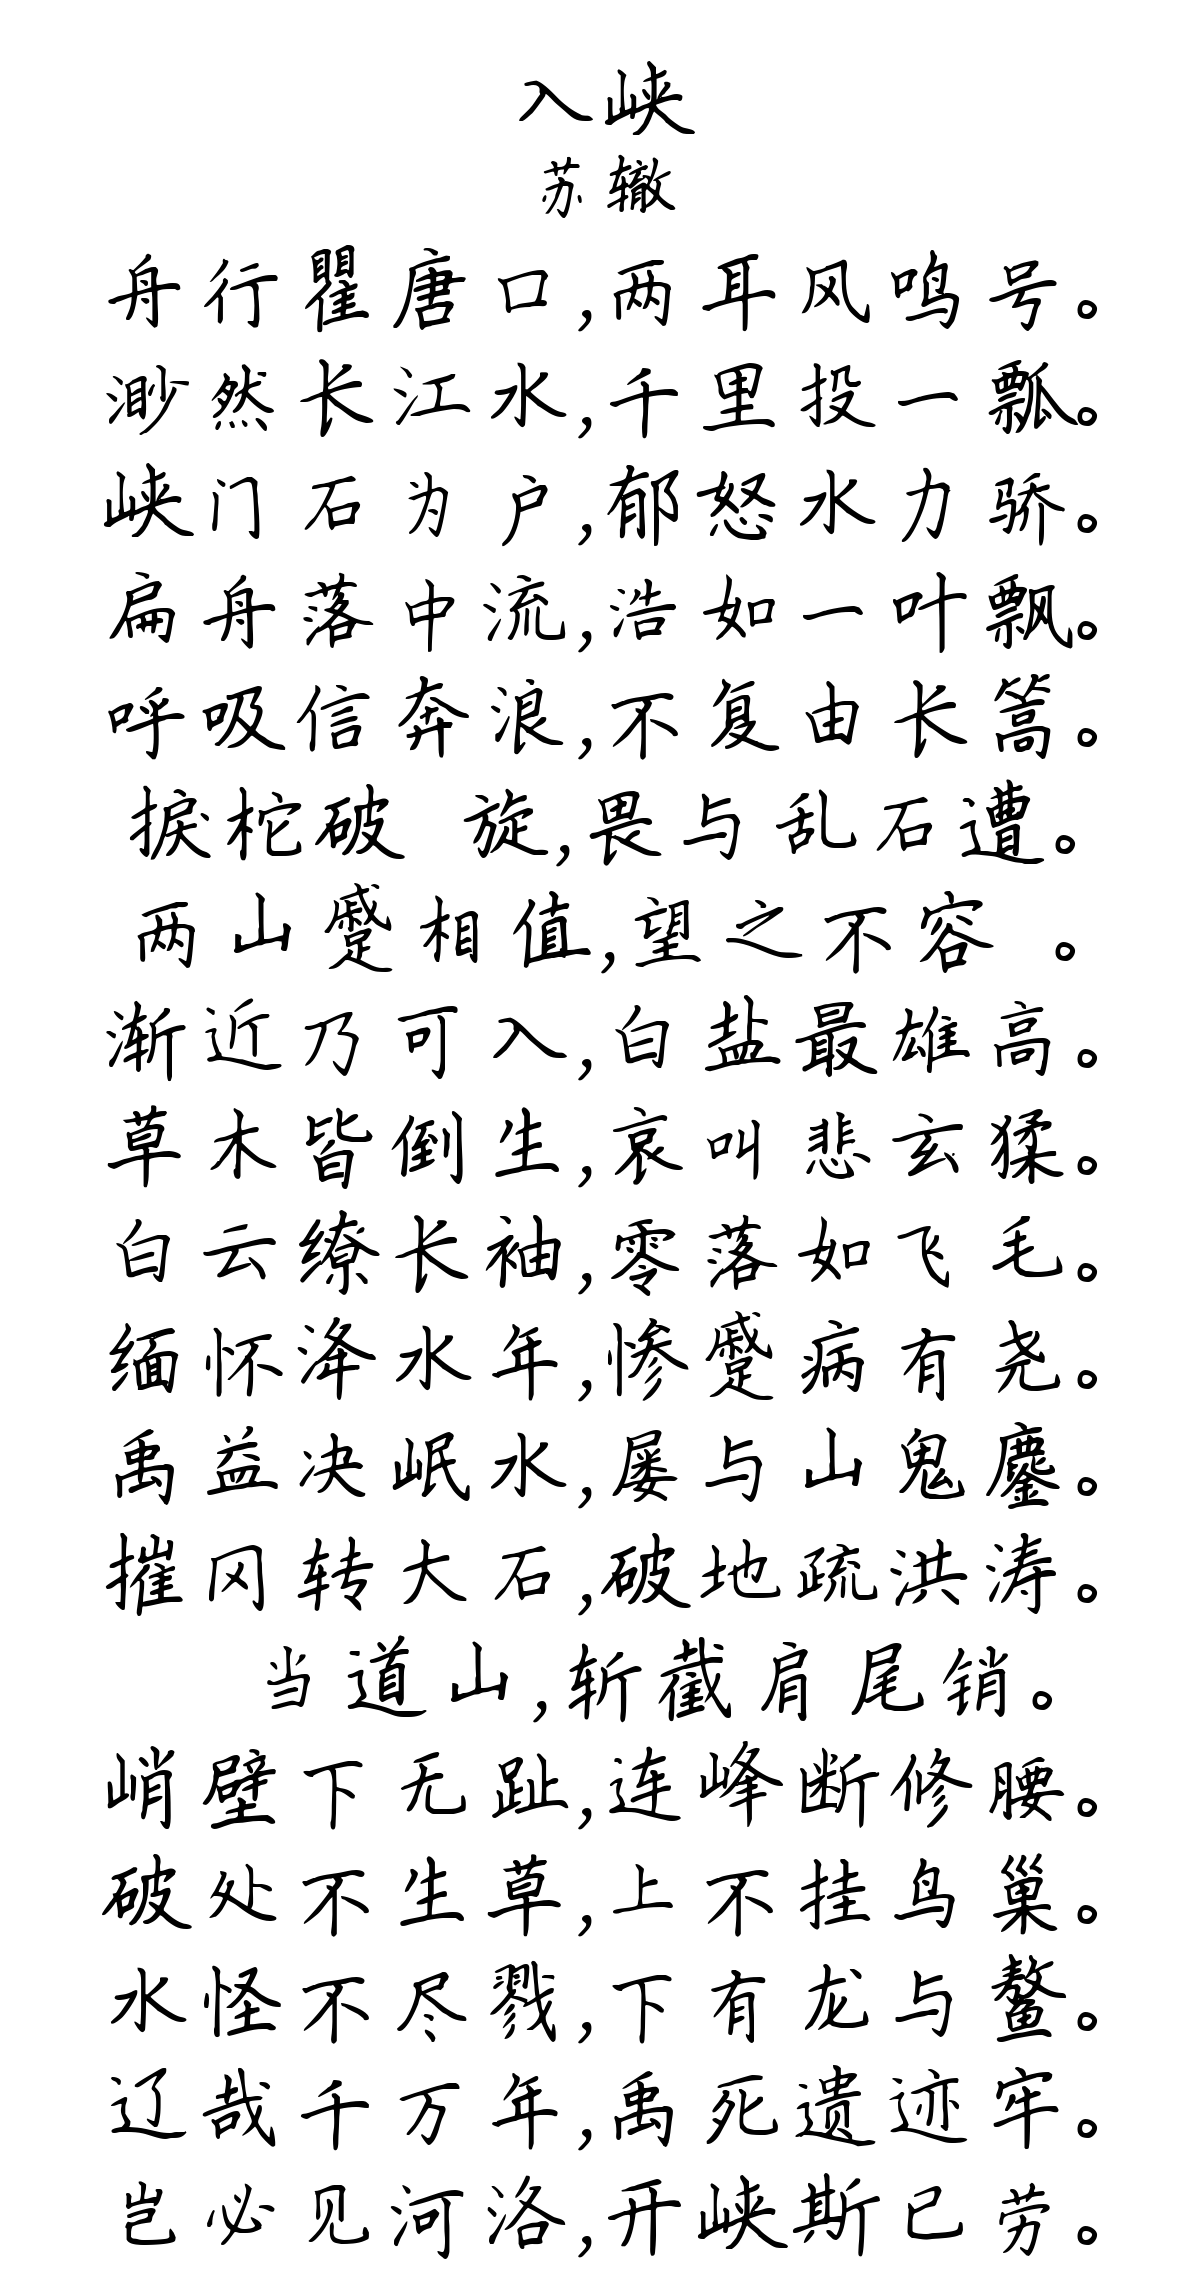 入峡
苏辙
舟行瞿唐口,两耳风鸣号。
渺然长江水,千里投一瓢。
峡门石为户,郁怒水力骄。
扁舟落中流,浩如一叶飘。
呼吸信奔浪,不复由长篙。
捩柁破 旋,畏与乱石遭。
两山蹙相值,望之不容 。
渐近乃可入,白盐最雄高。
草木皆倒生,哀叫悲玄猱。
白云缭长袖,零落如飞毛。
缅怀洚水年,惨蹙病有尧。
禹益决岷水,屡与山鬼鏖。
摧冈转大石,破地疏洪涛。
当道山,斩截肩尾销。
峭壁下无趾,连峰断修腰。
破处不生草,上不挂鸟巢。
水怪不尽戮,下有龙与鳌。
辽哉千万年,禹死遗迹牢。
岂必见河洛,开峡斯已劳。